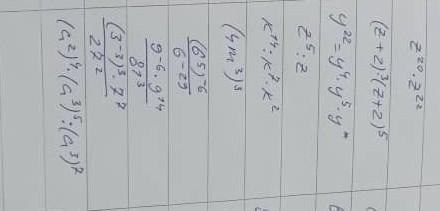 z²⁰ · z²²
(z+2)³(z+2)⁵
y²² = y⁴ · y⁵ · y*
z⁵ : z
k¹⁴ : k⁷ · k²
(4m³)³
(6⁵)⁻⁶
6⁻²⁹
9⁻⁶ · 9¹⁴
81³
(3⁻³)⁵ · 7⁷
27²
(a²)⁴(a³)⁵ : (a⁵)⁷